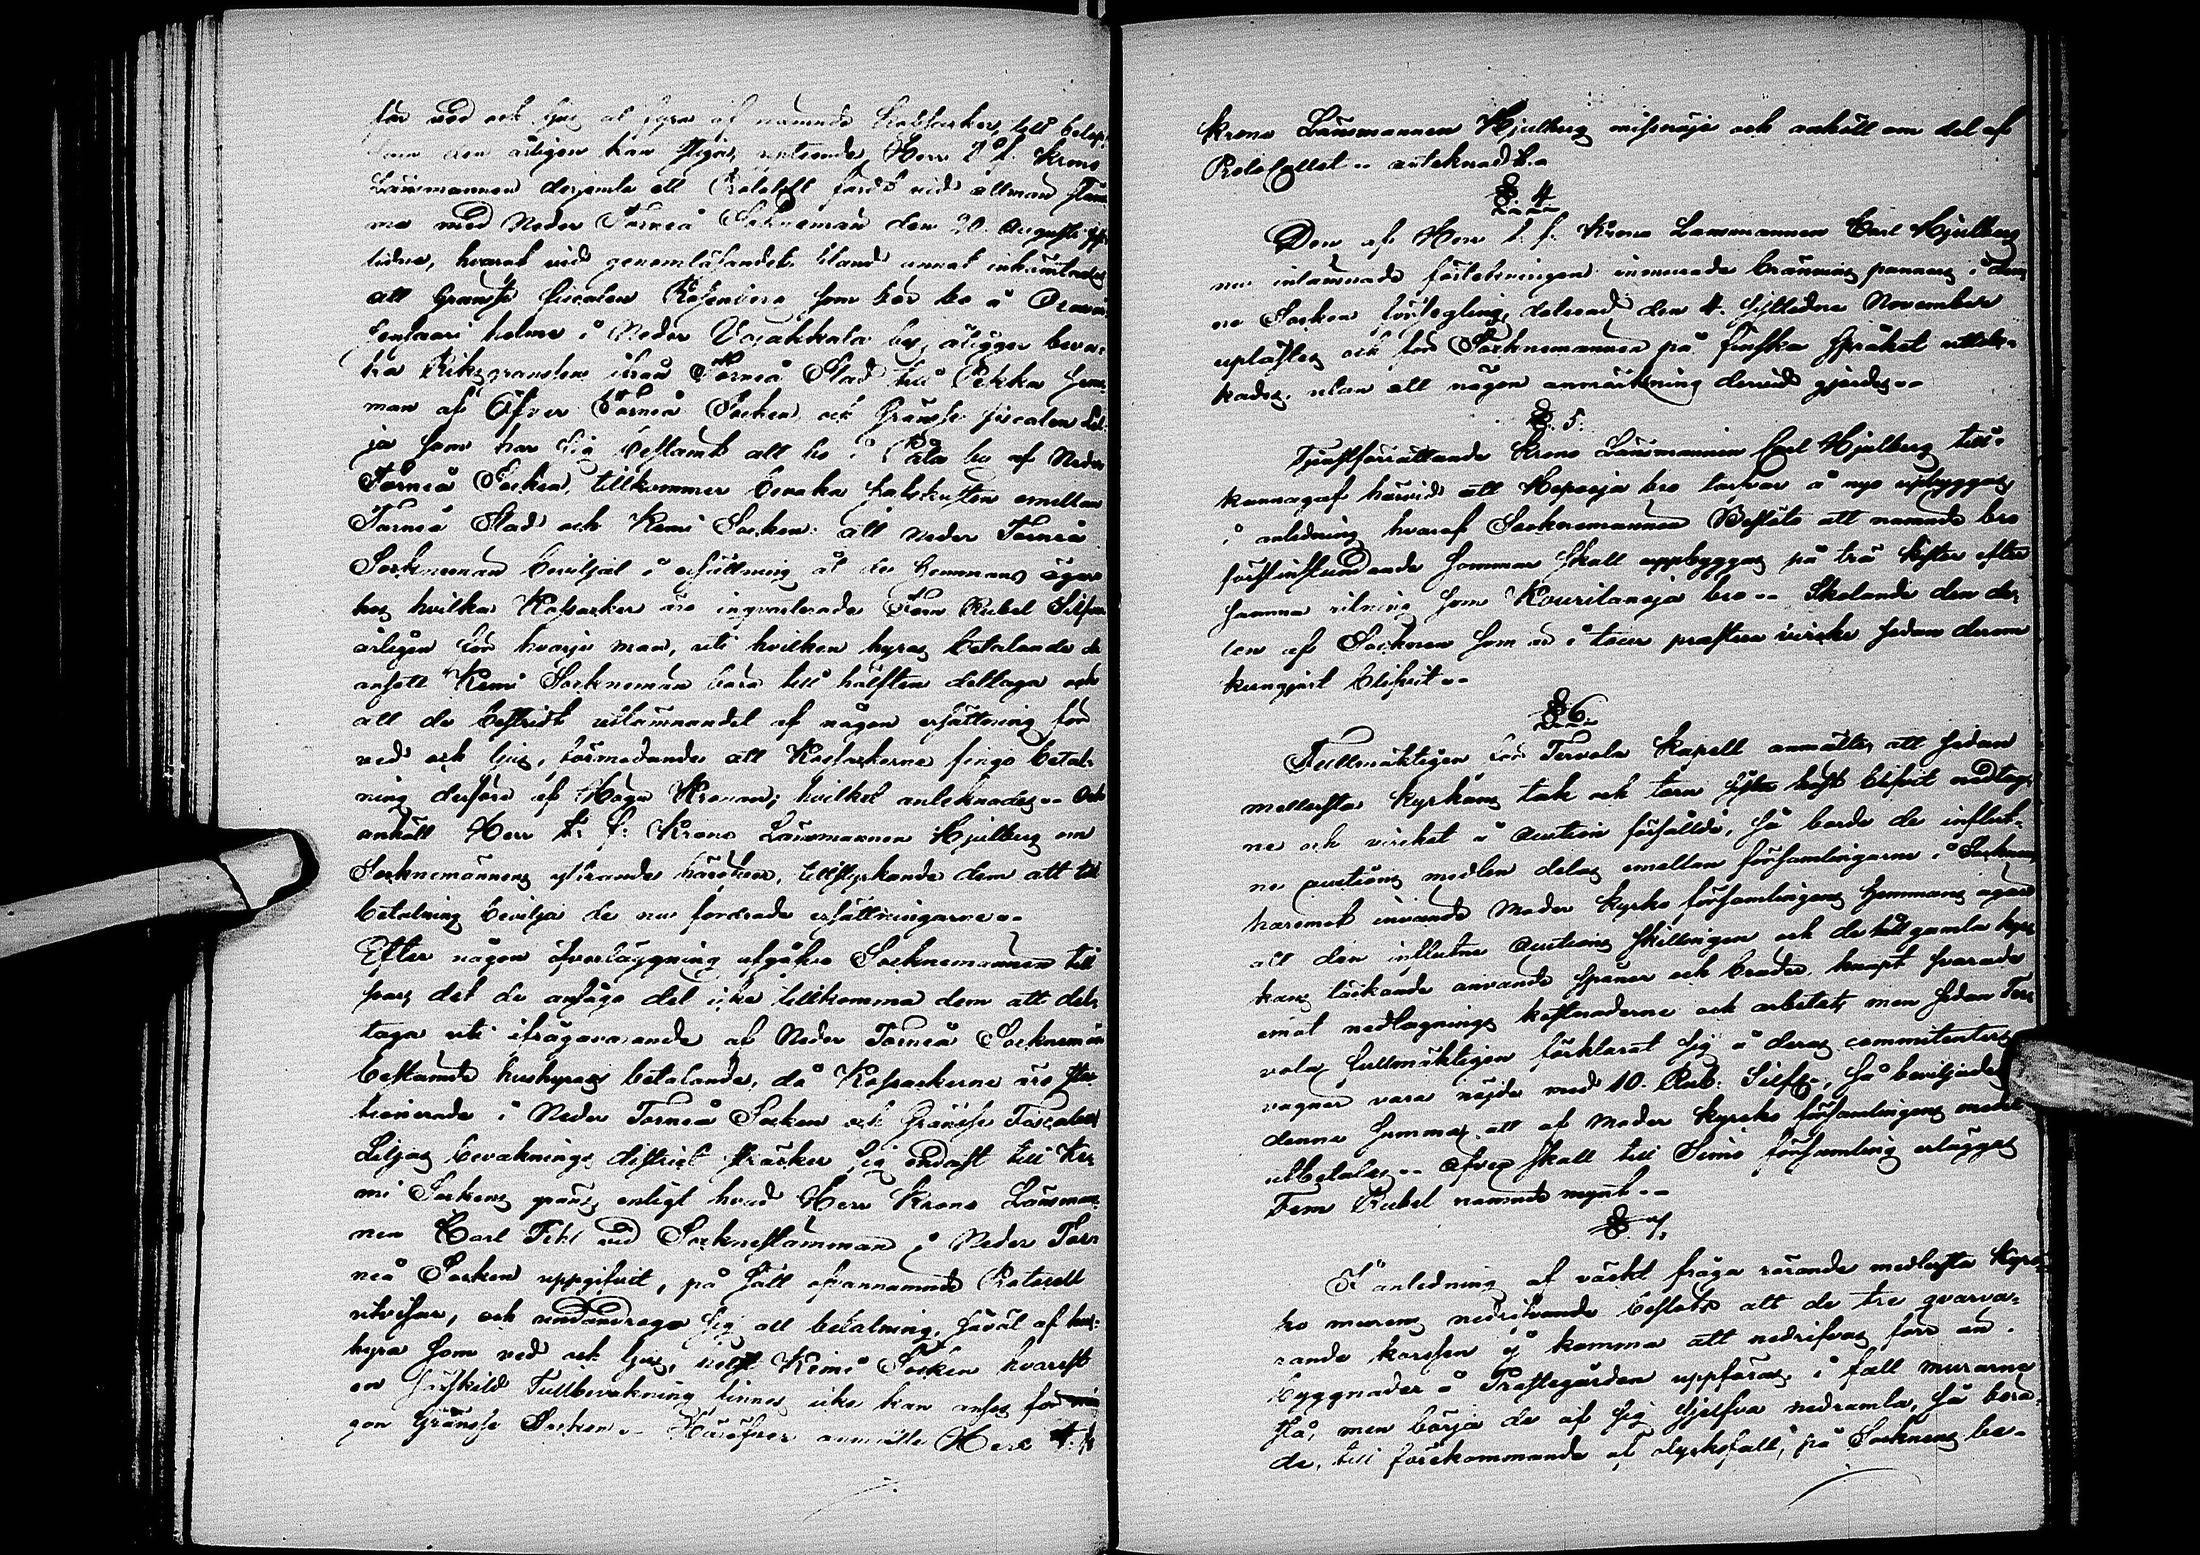 för ved och ljus at fyra af nämnde Kossacker, till belop-
som den årligen kan stiga, upteende Herr t: f: Krono
Länsmannen derjemte ett Protokoll fördt vid allman stäm-
ma med Neder Torneå Sockneman den 20. Augustii
tidne, hvaraf vid genomläsandet bland annat inhämtades
att Gränsse fiscalen Rosenbero som bör bo å
holme i Neder Vojakkala by, åligger beva-
ka Riksgränsen ifrån Torneå Stad till Pekka hem-
man af Öfver Torneå Socken och Gränsse fiscalen Lil-
ja som har sig bestamt att bo i by af Neder
Torneå Socken, tillkommer bevaka hafskusten emellan
Torneå Stad och Kemi Socken: att Neder Torneå
Socknemän beviljat i ersättning åt de hemmans ägare
hos hvilka Kossacker äro inqvarterade Fem Rubel Silfver
årligen för hvarje man, uti hvilken hyras betalande de
ansett Kemi Socknemän böra till hälften deltaga och
att de bestridt utlämnandet af någon ersättning för
ved och ljus, förmodande att Kossackerne fingo betal-
ning derföre af Höga Kronan; hvilket anteknades-- Och
anhöll Herr t: f: Krono Länsmannen Hjulberg om
Socknemännens yttrande häröfver, tillstyrkande dem att till
betalning bevilja de nu fordrade ersättningarne--
Efter någon öfverläggning afgåfvo Socknemannen till
svar, det de ansågo det icke tillkomma dem att del-
taga uti ifrågavarande af Neder Torneå Socknemän
bestämde hushyras betalande, då Kossackerne äro sta-
tionerade i Neder Torneå Socken och Gränsse Fiscalen
Liljas bevaknings district sträcker sig endast till Ke-
mi Sockens gräns enligt hvad Herr Krono Länsman-
nen Carl vid Socknestämman i Neder Tor-
neå Socken uppgifvit, på sätt ofvannämnde Protocoll
utvisar, och undandrogo sig all betalning, såväl af hus-
hyra som ved och ljus, helst Kemi Socken hvarest
en särskild Tullbevakning finnes icke kan anses för nå-
gon Gränsse Socken-- Häröfver anmälte Herr t: f:
Krono Länsmannen Hjulberg missnöje och anhöll om del af
Protocollet-- anteknadt.
§ 4
Den af Herr t: f: Krono Länsmannen Carl Hjulberg
nu inlämnade förtekningen innevarade bränvins pannors i den-
ne Socken försegling, daterad den 4. sistledne November
uplästes och för Socknemannen på finska språket uttol-
kades, utan att någon anmärkning dervid gjordes--
§. 5.
Tjenstförrättande Krono Länsmannen Carl Hjulberg till-
kännagaf härvid att Heposja bro tarfvar å nyo upbyggas,
i anledning hvaraf Socknemannen Besluto att namnde bro
förstinstundande sommar skall uppbyggas på trä kistor efter
samma ritning som Kourilanoja bro-- Skolande den de-
len af Socknen som är i tour præstera virke sedan derom
kungjort blifvit--
§ 6.
Fullmäktigen för Tervola Kapell anmälte, att sedan
mellersta kyrkans tak och torn sistl. höst blifvit nedtag-
ne och virket å Auction försåldt, så borde de influt-
ne auctions medlen delas emellan församlingarne i Socknen,
häremot invände Moder kyrko församlingens hemmans ägare
att den influtne Auctions skillingen och de till gamla kyr-
kans täckande använde spåner och bräder knapt svarade
emot nedtagnings kostnaderne och arbetet, men sedan Ter-
vola fullmäktigen förklarat sig å deras committenters
vägnar vara nöjde med 10. Rub: Silfr, så beviljades
denne summa att af Moder kyrko församlingens medel
utbetalas-- Äfven skall till Simo församling erläggas
Fem Rubel namnde mynt--
§. 7.
I anledning af väckt fråga rörande mellersta Kyr-
ko murens nedrifvande beslöts att de tre qvarva-
rande korssen ej komma att nedrifvas förr än
byggnader å Prestegården uppföras, i fall murarne
stå, men börja de af sig sjelfva nedramla, så böra
de, till förekommande af olycksfall, på Socknens be-